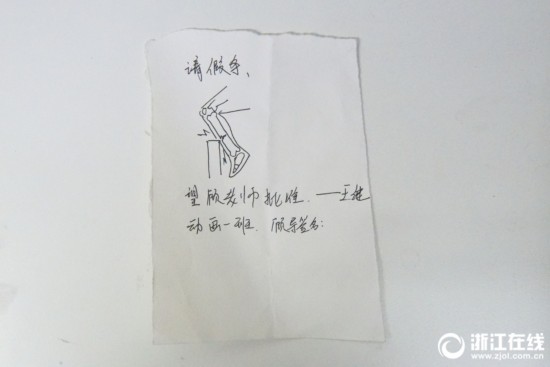 请假条、
望顾老师批准.——王桂
动画一班. 顾导签名:
浙江在线
www.zjol.com.cn